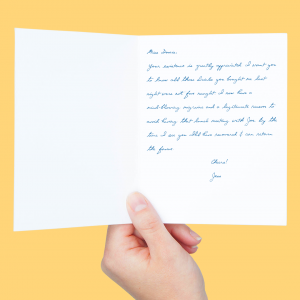 Miss Imara,
Your assistance is greatly appreciated. I want you
to know all those drinks you bought on last
night were not for naught. I now have a
mind-blowing migraine and a legitimate reason to
avoid having that lunch meeting with Jon. By the
time I see you I'll have recovered & can return
the favor.
Cheers!
Jess